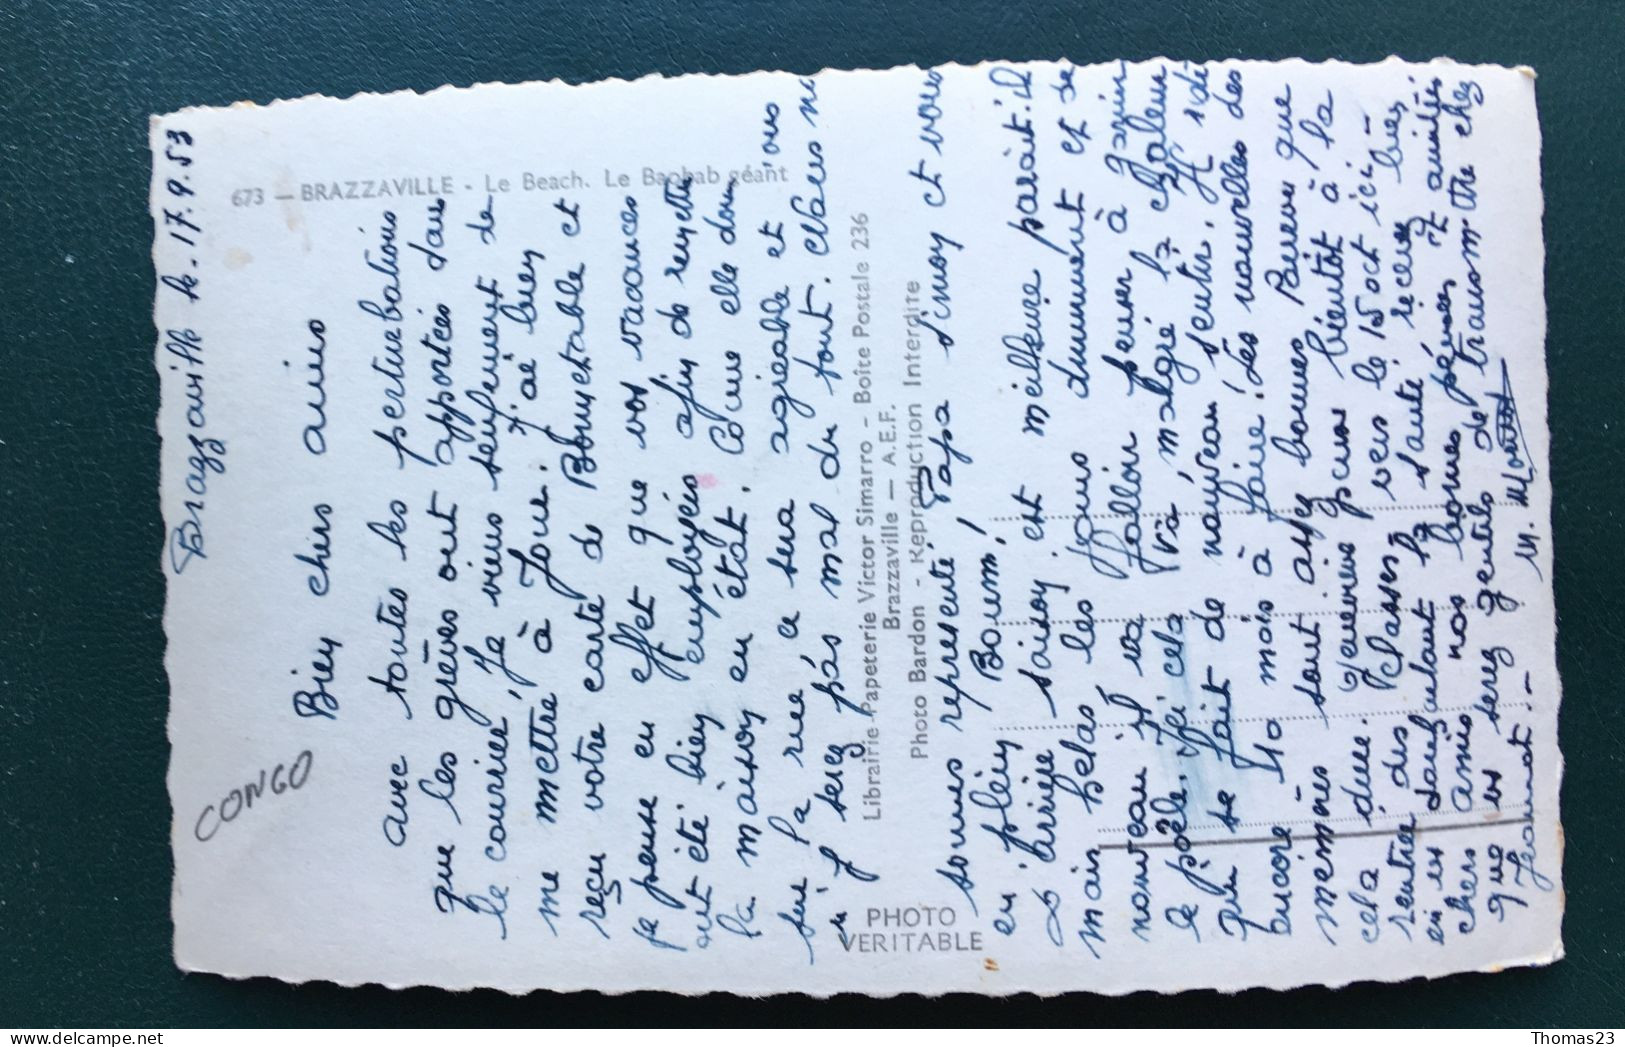 Brazzaville le. 17.9.53
CONGO
673 — BRAZZAVILLE - Le Beach. Le Baobab géant
Bien chers amis
avec toutes les perturbations
que les grèves ont apportées dans
le courrier, je viens seulement de
me mettre à jour. j'ai bien
reçu votre carte de et
je pense en effet que vos vacances
ont été bien employées afin de remettre
la maison en état. Comme elle donne
sur la rue ce sera agréable et vous
n'y serez pas mal du tout. Nous
Librairie-Papeterie Victor Simarro - Boîte Postale 236
Brazzaville — A.E.F.
Photo Bardon - Reproduction Interdite
PHOTO
VERITABLE
sommes représenté, Papa Simon et vous
en plein Boum!
L'arrière saison est meilleure parait-il
mais hélas les jours diminuent et de
nouveau il va falloir penser à garnir
le poêle. Ici cela va, malgré la chaleur
qui se fait de nouveau sentir. Et
encore 40 mois à faire! Les nouvelles des
mémères sont assez bonnes Pourvu que
cela dure. Geneviève pense bientôt à la
rentrée des classes, vers le 15 oct ici -
en souhaitant la santé recevez bien
chers amis nos bonnes pensées et amitiés
que vous serez gentils de transmettre chez
Jeannot. -